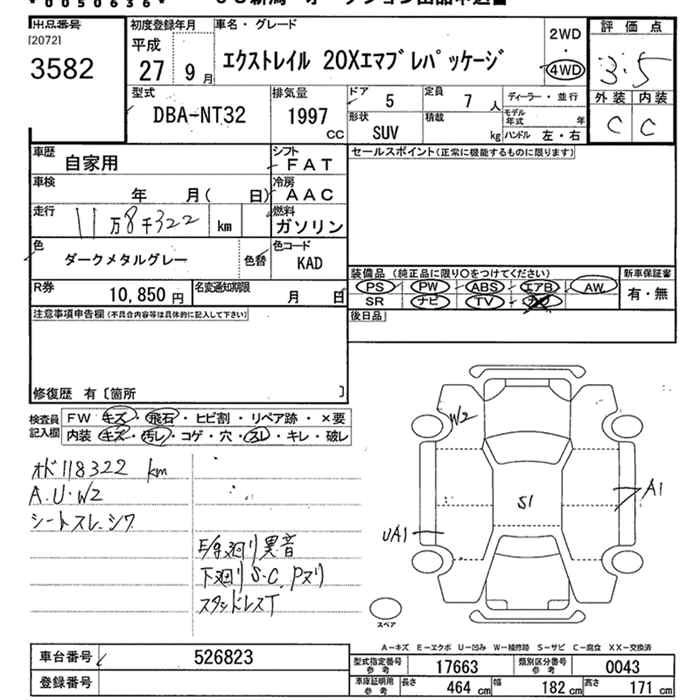 *0050636*
出品番号 初度登録年月 車名・グレード 2WD 評価点
[2072]
3582 平成 27 9月 エクストレイル 20Xエマブレパッケージ ・ 4WD 3.5
型式 排気量 ドア 定員 ディーラー・並行 外装 内装
DBA-NT32 1997 CC 5 7人 モデル年式 年 C C
形状 積載
SUV kg ハンドル 左・右
車歴 自家用 シフト FAT セールスポイント(正常に機能するものに限ります)
車検 年 月( 日) 冷房 AAC
走行 11万8千322 km 燃料 ガソリン
色 ダークメタルグレー 色替 色コード KAD
装備品 (純正品に限り○をつけてください) 新車保証書
R券 10,850円 名変通知期限 月 日 PS PW ABS エアB AW 有・無
SR ナビ TV
注意事項申告欄(不具合内容等は具体的に記入して下さい) 後日品
修復歴 有 [箇所 ]
検査員 FW キズ・飛石・ヒビ割・リペア跡・×要
記入欄 内装 キズ・汚レ・コゲ・穴・スレ・キレ・破レ
W2
オド118322 km
A.U.W2
シートスレ.シワ
S1
A1
UA1
異音
下廻り S.C.Pヌリ
スタッドレスT
スペア
A-キズ E-エクボ U-凹み W-補修跡 S-サビ C-腐食 XX-交換済
車台番号 526823 型式指定番号 参考 17663 類別区分番号 参考 0043
登録番号 車庫証明用 参考 長さ 464 cm 幅 182 cm 高さ 171 cm